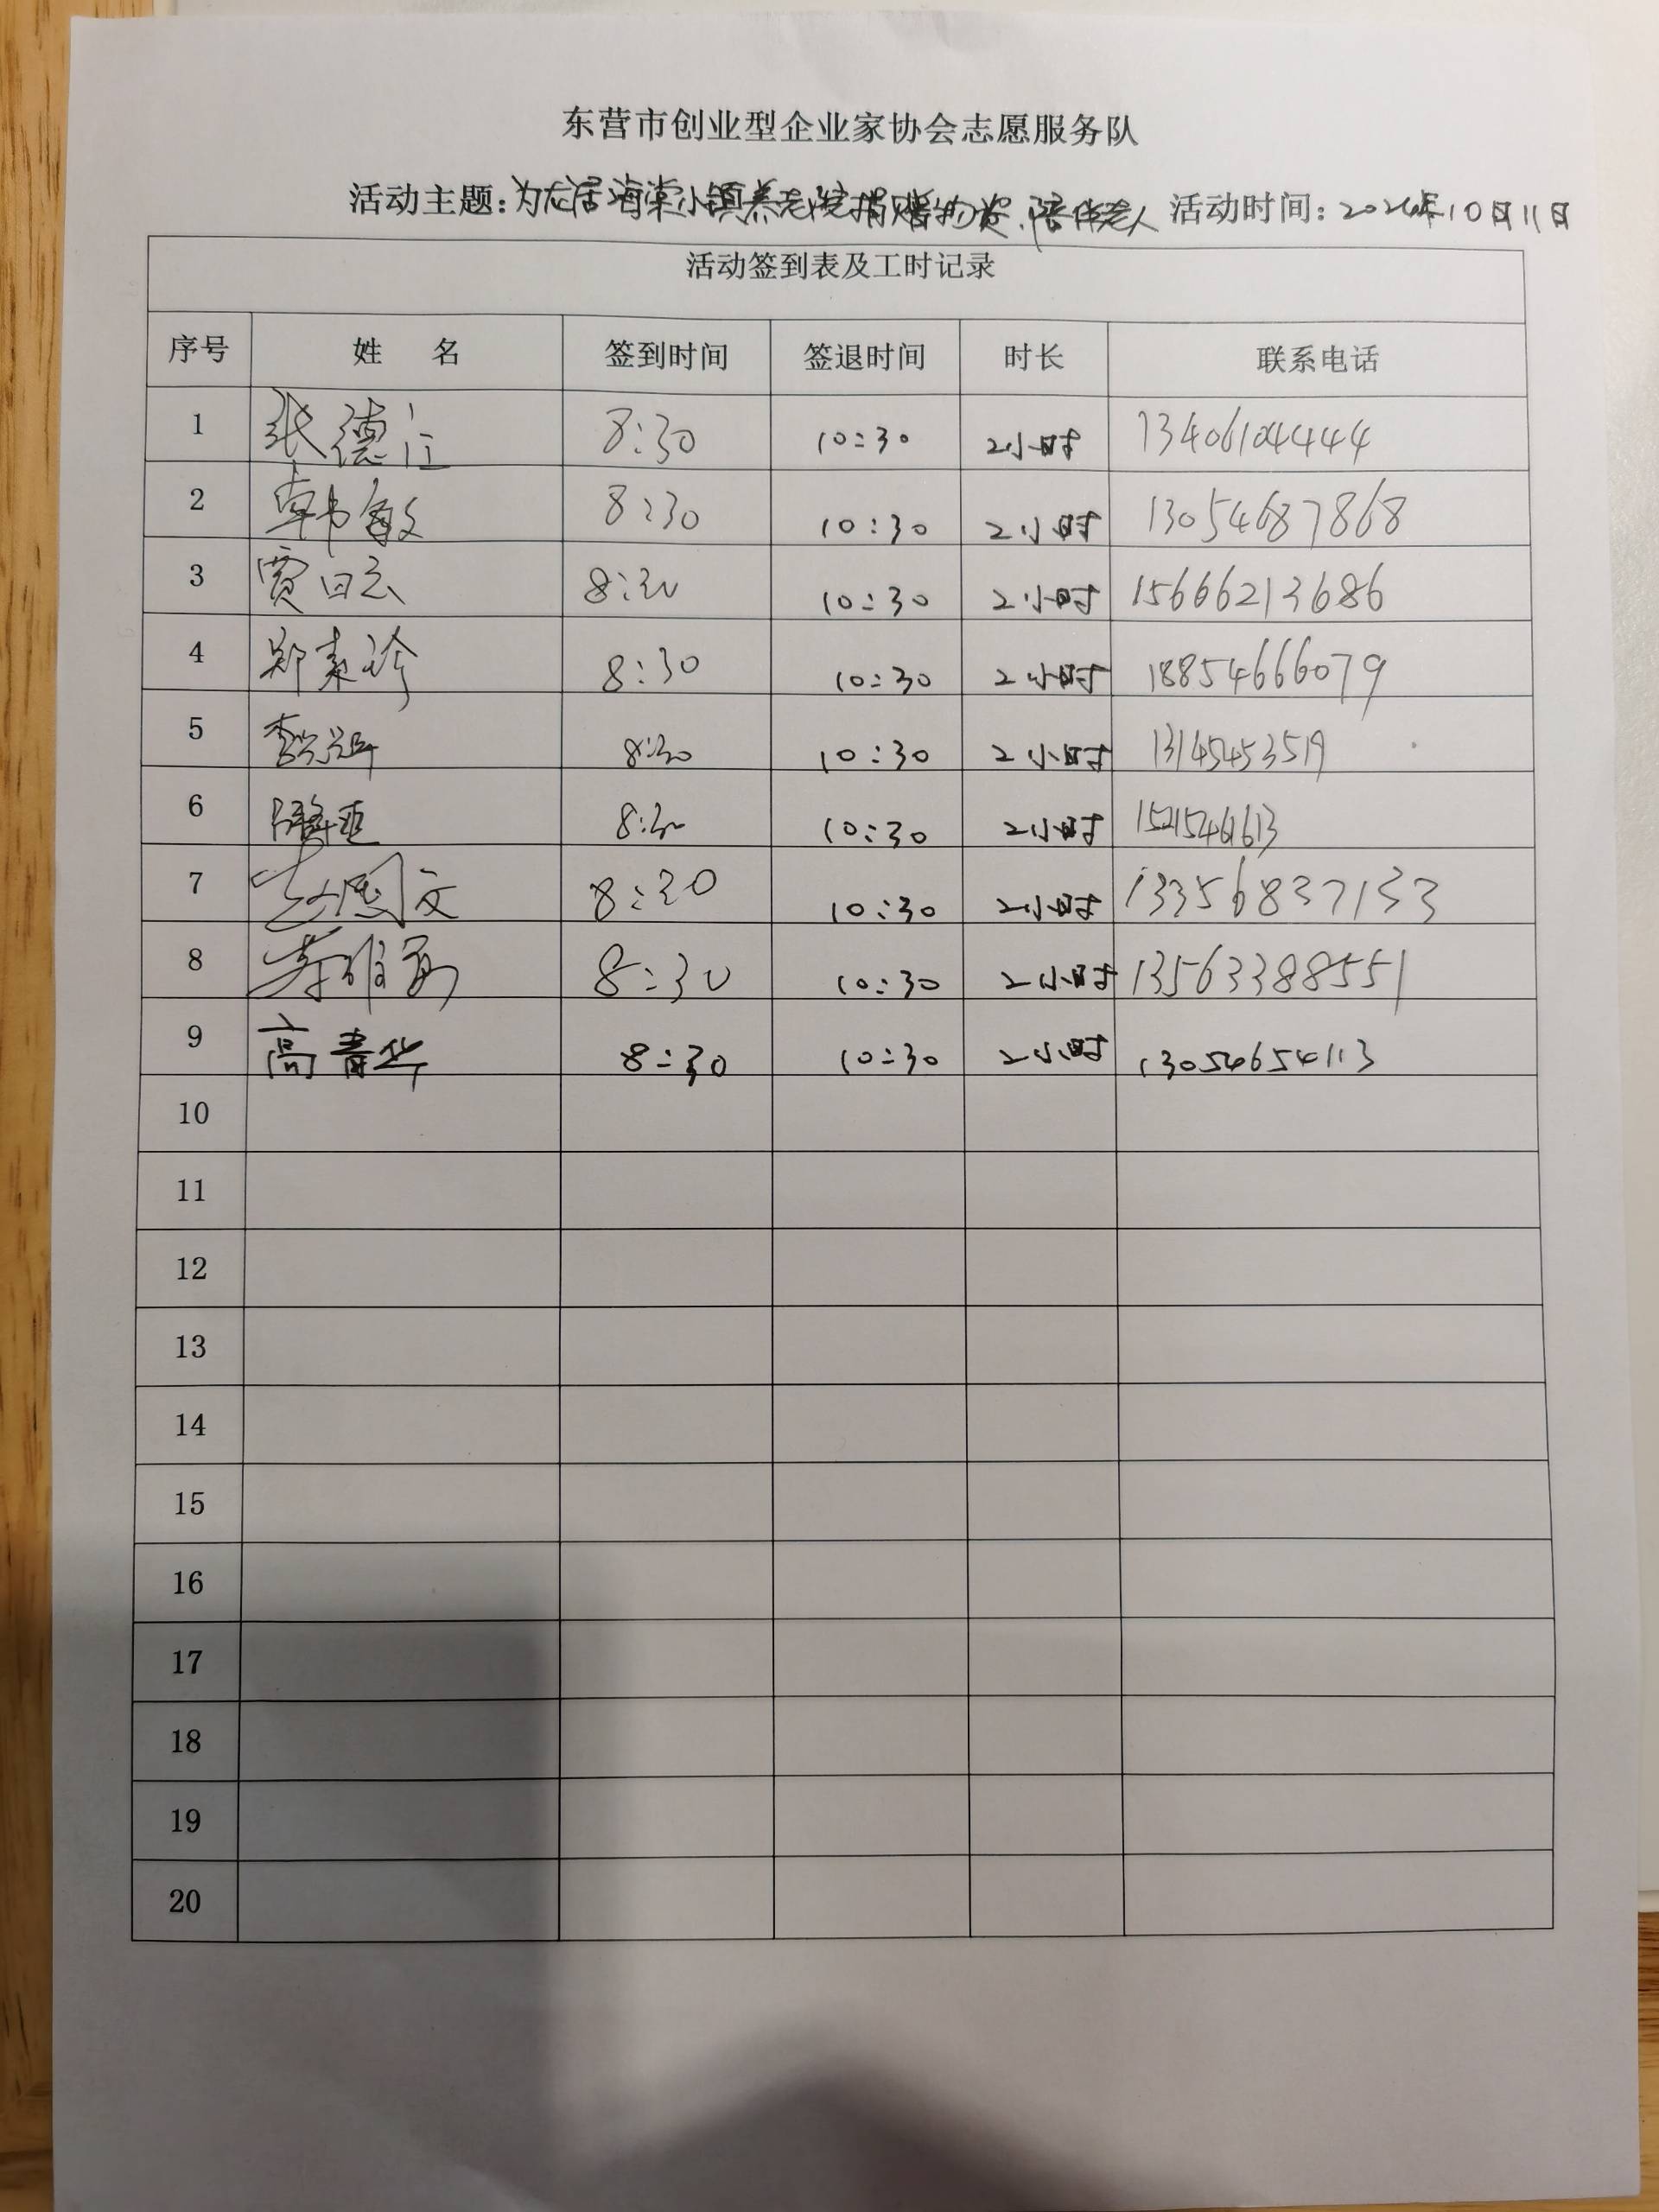 东营市创业型企业家协会志愿服务队
活动主题:为龙居海棠小镇养老院捐赠物资、陪伴老人 活动时间:2024年10月11日
活动签到表及工时记录
序号 姓 名 签到时间 签退时间 时长 联系电话
1 张德江 8:30 10:30 2小时 13406104444
2 韩敏 8:30 10:30 2小时 13054687868
3 贾白云 8:30 10:30 2小时 15666213686
4 郑素珍 8:30 10:30 2小时 18854666079
5 8:30 10:30 2小时
6 8:30 10:30 2小时
7 文 8:30 10:30 2小时 13356837133
8 8:30 10:30 2小时 13563388551
9 高青华 8:30 10:30 2小时 13054654113
10
11
12
13
14
15
16
17
18
19
20